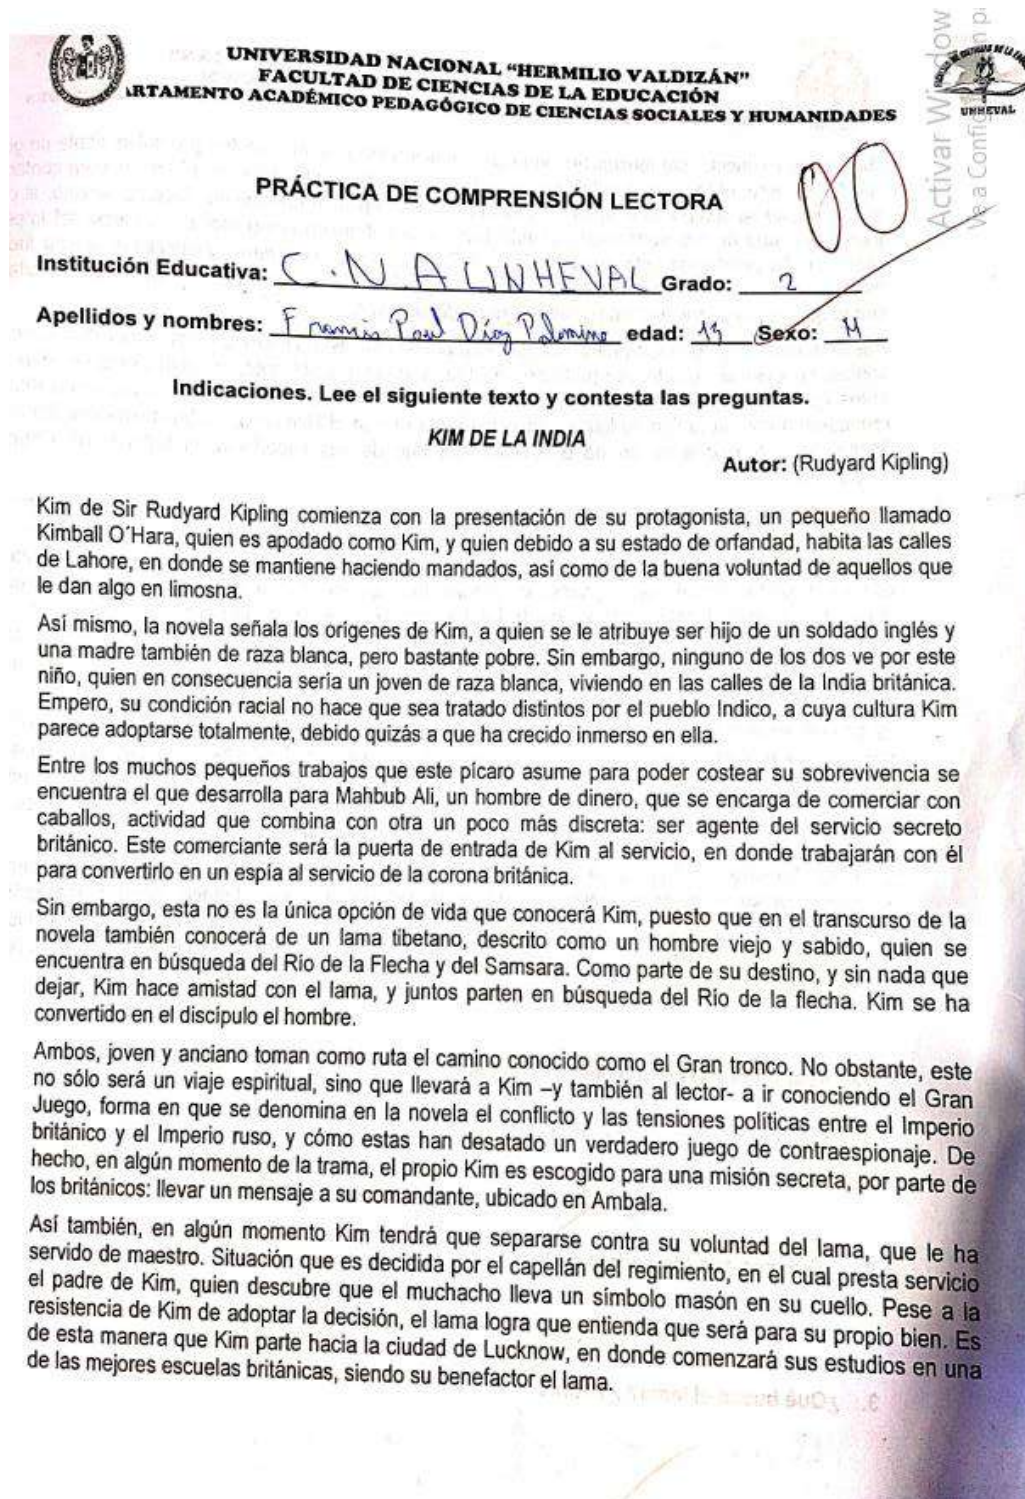 UNIVERSIDAD NACIONAL “HERMILIO VALDIZÁN”
FACULTAD DE CIENCIAS DE LA EDUCACIÓN
ARTAMENTO ACADÉMICO PEDAGÓGICO DE CIENCIAS SOCIALES Y HUMANIDADES
UNHEVAL
Activar Window
Ve a Config
PRÁCTICA DE COMPRENSIÓN LECTORA
00
Institución Educativa: C.N.A UNHEVAL Grado: 2
Apellidos y nombres: Francis Paul Díaz Palomino edad: 13 Sexo: M
Indicaciones. Lee el siguiente texto y contesta las preguntas.
KIM DE LA INDIA
Autor: (Rudyard Kipling)
Kim de Sir Rudyard Kipling comienza con la presentación de su protagonista, un pequeño llamado
Kimball O´Hara, quien es apodado como Kim, y quien debido a su estado de orfandad, habita las calles
de Lahore, en donde se mantiene haciendo mandados, así como de la buena voluntad de aquellos que
le dan algo en limosna.
Así mismo, la novela señala los orígenes de Kim, a quien se le atribuye ser hijo de un soldado inglés y
una madre también de raza blanca, pero bastante pobre. Sin embargo, ninguno de los dos ve por este
niño, quien en consecuencia sería un joven de raza blanca, viviendo en las calles de la India británica.
Empero, su condición racial no hace que sea tratado distintos por el pueblo Indico, a cuya cultura Kim
parece adoptarse totalmente, debido quizás a que ha crecido inmerso en ella.
Entre los muchos pequeños trabajos que este pícaro asume para poder costear su sobrevivencia se
encuentra el que desarrolla para Mahbub Ali, un hombre de dinero, que se encarga de comerciar con
caballos, actividad que combina con otra un poco más discreta: ser agente del servicio secreto
británico. Este comerciante será la puerta de entrada de Kim al servicio, en donde trabajarán con él
para convertirlo en un espía al servicio de la corona británica.
Sin embargo, esta no es la única opción de vida que conocerá Kim, puesto que en el transcurso de la
novela también conocerá de un lama tibetano, descrito como un hombre viejo y sabido, quien se
encuentra en búsqueda del Río de la Flecha y del Samsara. Como parte de su destino, y sin nada que
dejar, Kim hace amistad con el lama, y juntos parten en búsqueda del Río de la flecha. Kim se ha
convertido en el discípulo el hombre.
Ambos, joven y anciano toman como ruta el camino conocido como el Gran tronco. No obstante, este
no sólo será un viaje espiritual, sino que llevará a Kim –y también al lector- a ir conociendo el Gran
Juego, forma en que se denomina en la novela el conflicto y las tensiones políticas entre el Imperio
británico y el Imperio ruso, y cómo estas han desatado un verdadero juego de contraespionaje. De
hecho, en algún momento de la trama, el propio Kim es escogido para una misión secreta, por parte de
los británicos: llevar un mensaje a su comandante, ubicado en Ambala.
Así también, en algún momento Kim tendrá que separarse contra su voluntad del lama, que le ha
servido de maestro. Situación que es decidida por el capellán del regimiento, en el cual presta servicio
el padre de Kim, quien descubre que el muchacho lleva un símbolo masón en su cuello. Pese a la
resistencia de Kim de adoptar la decisión, el lama logra que entienda que será para su propio bien. Es
de esta manera que Kim parte hacia la ciudad de Lucknow, en donde comenzará sus estudios en una
de las mejores escuelas británicas, siendo su benefactor el lama.